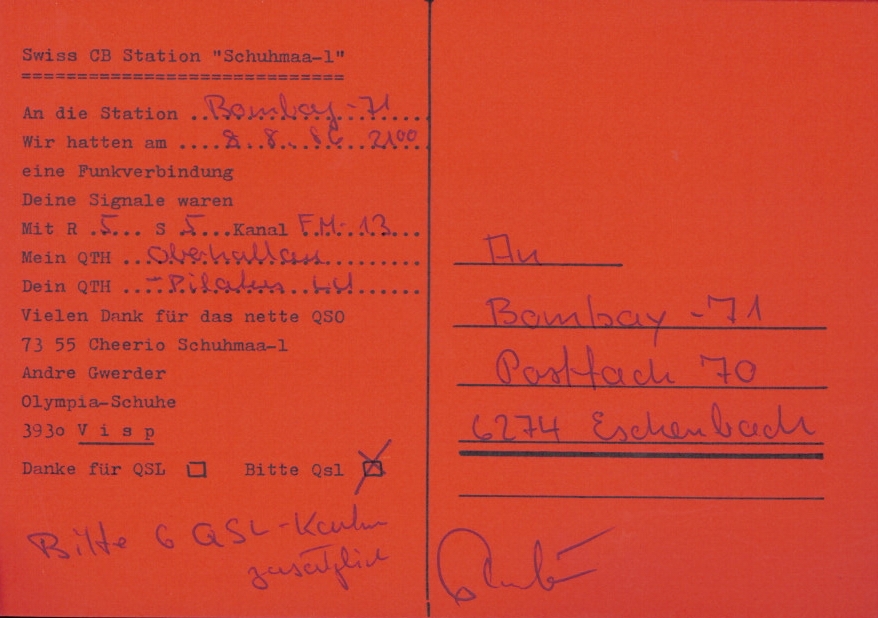 Swiss CB Station "Schuhmaa-1"
=============================
An die Station ..Bombay-71....
Wir hatten am ....8.8..86 2100
eine Funkverbindung
Deine Signale waren
Mit R .5... S 5...Kanal FM.13...
Mein QTH ..Oberhallau
Dein QTH ..-Pilatus LU
Vielen Dank für das nette QSO
73 55 Cheerio Schuhmaa-1
Andre Gwerder
Olympia-Schuhe
393o V i s p
Danke für QSL Bitte Qsl
Bitte 6 QSL-Karten
zusätzlich
An
Bombay-71
Postfach 70
6274 Eschenbach